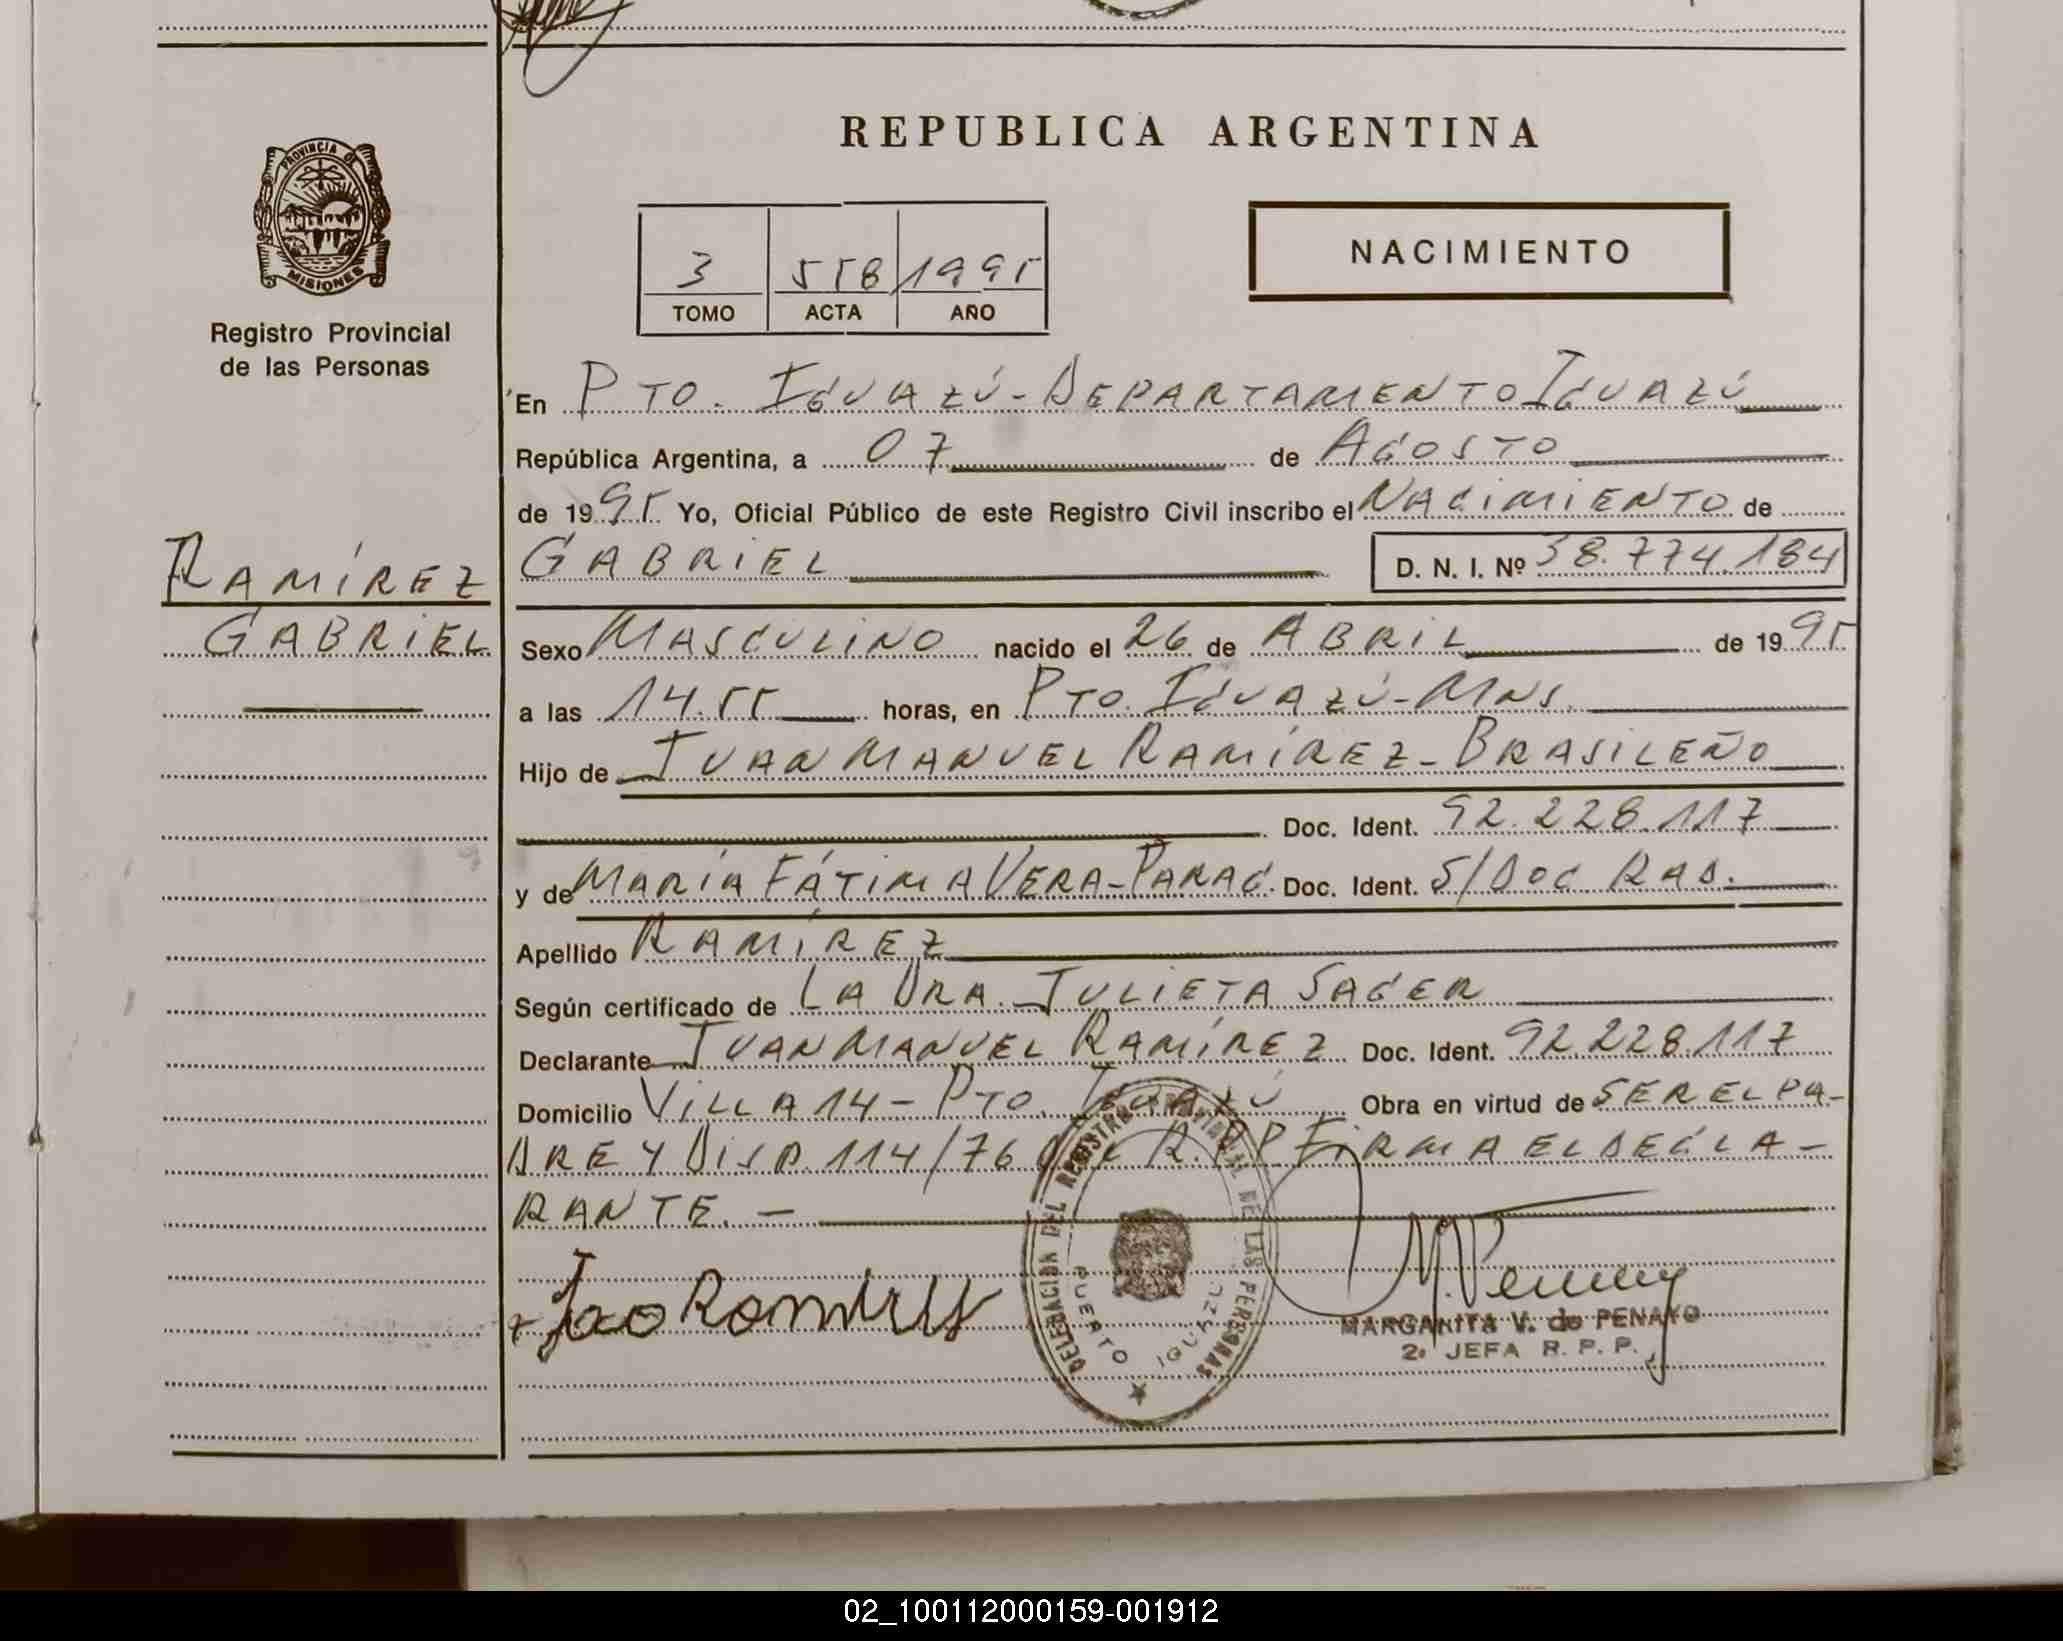 REPUBLICA ARGENTINA
PROVINCIA DE
MISIONES
Registro Provincial
de las Personas
NACIMIENTO
3 558 1995
TOMO ACTA AÑO
En PTO. IGUAZÚ - DEPARTAMENTO IGUAZÚ
República Argentina, a 07 de AGOSTO
de 1995 Yo, Oficial Público de este Registro Civil inscribo el NACIMIENTO de
RAMÍREZ
GABRIEL
GABRIEL D. N. I. Nº 38.774.184
Sexo MASCULINO nacido el 26 de ABRIL de 1995
a las 14.55 horas, en PTO. IGUAZÚ - MNS.
Hijo de JUAN MANUEL RAMÍREZ - BRASILEÑO
Doc. Ident. 92.228.117
y de MARÍA FÁTIMA VERA - PARAG. Doc. Ident. S/DOC RAD.
Apellido RAMÍREZ
Según certificado de LA DRA. JULIETA SAGER
Declarante JUAN MANUEL RAMÍREZ Doc. Ident. 92.228.117
Domicilio VILLA 14 - PTO. IGUAZÚ Obra en virtud de SER EL PA-
DRE Y DISP. 114/76 R.P.P FIRMA EL DECLA-
RANTE. -
DELEGACION DEL REGISTRO PROVINCIAL DE LAS PERSONAS
PUERTO IGUAZU
MARGARITA V. de PENAYO
2ª JEFA R. P. P.
02_100112000159-001912